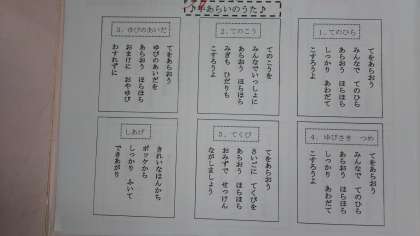 ♪手あらいのうた♪
1．てのひら
てをあらおう
みんなで てのひら
あらおう ほらほら
しっかり あわだて
こすろうよ
2．てのこう
てのこうを
みんなでいっしょに
あらおう ほらほら
みぎも ひだりも
こすろうよ
3．ゆびのあいだ
てをあらおう
ゆびのあいだを
あらおう ほらほら
おまけに おやゆび
わすれずに
4．ゆびさき つめ
てをあらおう
みんなで てのひら
あらおう ほらほら
しっかり あわだて
こすろうよ
5．てくび
てをあらおう
さいごに てくびを
あらおう ほらほら
おみずで せっけん
ながしましょう
しあげ
きれいなはんかち
ポッケから
しっかり ふいて
できあがり